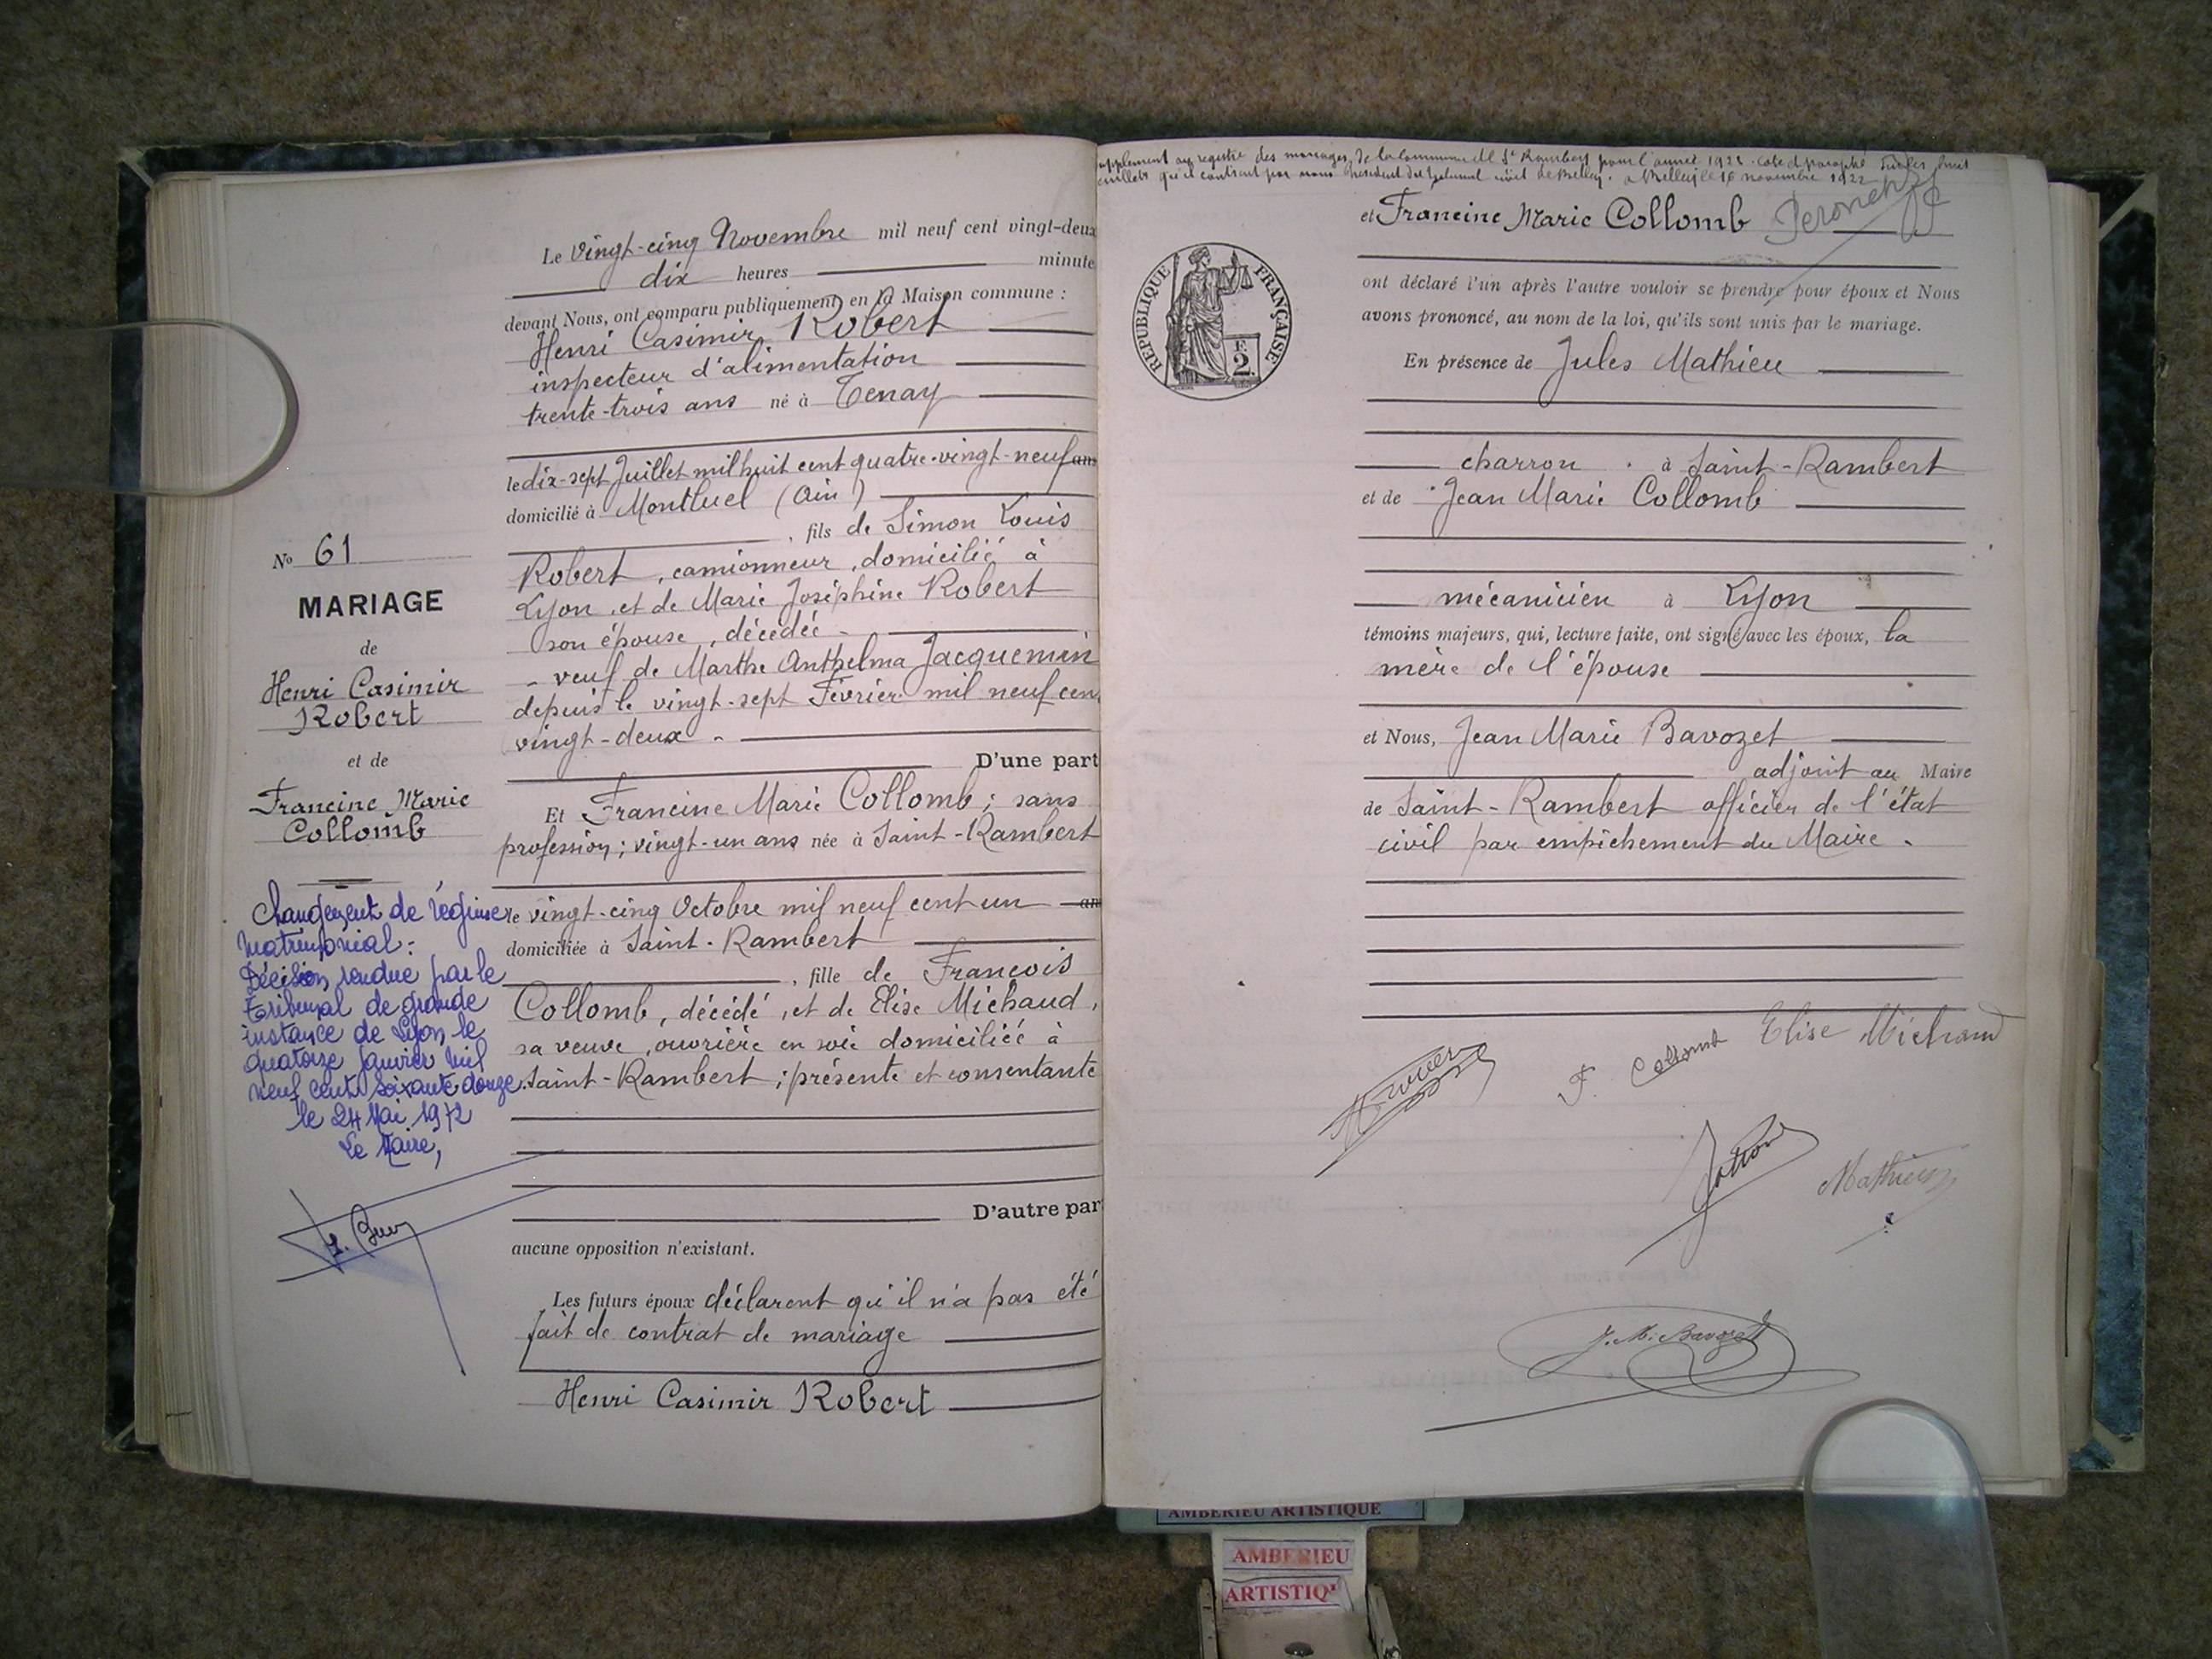 Le vingt-cinq Novembre mil neuf cent vingt-deux
dix heures minute
devant Nous, ont comparu publiquement en la Maison commune :
Henri Casimir Robert
inspecteur d'alimentation
trente-trois ans né à Tenay
le dix-sept Juillet mil huit cent quatre-vingt-neuf ans
domicilié à Montluel (Ain)
, fils de Simon Louis
Robert, camionneur, domicilié à
Lyon, et de Marie Joséphine Robert
son épouse, décédée
- veuf de Marthe Anthelma Jacquemin
depuis le vingt-sept Février mil neuf cen
vingt-deux -
D'une part
Et Francine Marie Collomb ; sans
profession ; vingt-un ans née à Saint-Rambert
le vingt-cinq Octobre mil neuf cent un an
domiciliée à Saint-Rambert
, fille de François
Collomb, décédé, et de Elise Michaud,
sa veuve, ouvrière en soie domiciliée à
Saint-Rambert ; présente et consentante
D'autre par
aucune opposition n'existant.
Les futurs époux déclarent qu'il n'a pas été
fait de contrat de mariage
Henri Casimir Robert
No 61
MARIAGE
de
Henri Casimir
Robert
et de
Francine Marie
Collomb
Changement de régime
matrimonial :
Décision rendue par le
Tribunal de grande
instance de Lyon le
quatorze janvier mil
neuf cent soixante douze.
le 24 Mai 1972
Le Maire,
supplément au registre des mariages de la commune de St Rambert pour l'année 1922. Coté et paraphé huit
feuillets par nous Président du tribunal civil de Belley. à Belley le 16 novembre 1922
et Francine Marie Collomb
RÉPUBLIQUE FRANÇAISE
F.
2.
ont déclaré l'un après l'autre vouloir se prendre pour époux et Nous
avons prononcé, au nom de la loi, qu'ils sont unis par le mariage.
En présence de Jules Mathieu
charron à Saint-Rambert
et de Jean Marie Collomb
mécanicien à Lyon
témoins majeurs, qui, lecture faite, ont signé avec les époux, la
mère de l'épouse
et Nous, Jean Marie Bavozet
adjoint au Maire
de Saint-Rambert officier de l'état
civil par empêchement du Maire.
F. Collomb Elise Michaud
Mathieu
J. M. Bavozet
AMBERIEU ARTISTIQUE
AMBERIEU
ARTISTIQ